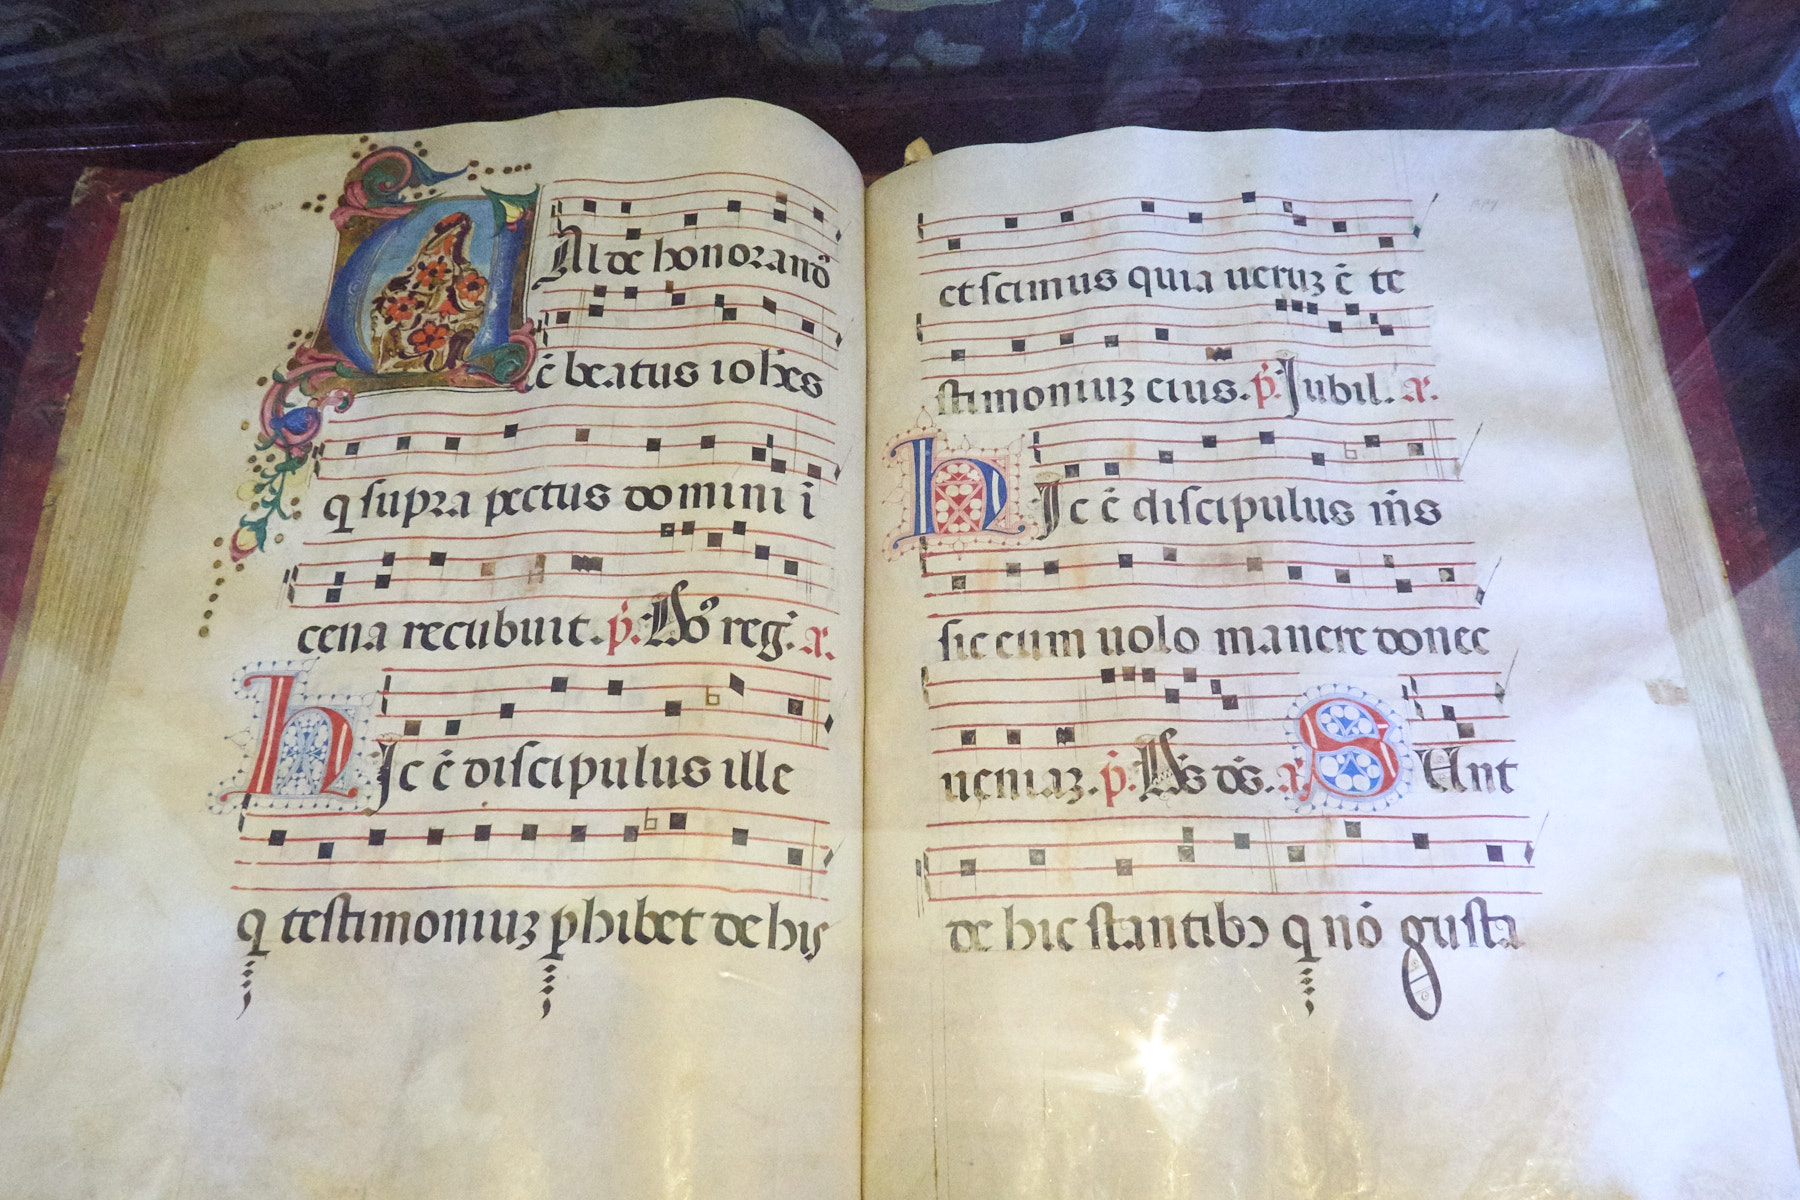 VAlde honorand᷒
ē beatus ioħes
q supra pectus domini ī
cena recubuit. p̄. Ds̄ reg. a.
hIc ē discipulus ille
q testimoniuꝫ phibet de his
et scimus quia ueruꝫ ē te
stimoniuꝫ eius. p̄. Iubil. a.
hIc ē discipulus m̄s
sic eum uolo manere donec
ueniaꝫ. p̄. Ds̄ ds̄. a. SUnt
de hic stantibꝫ q nō gusta